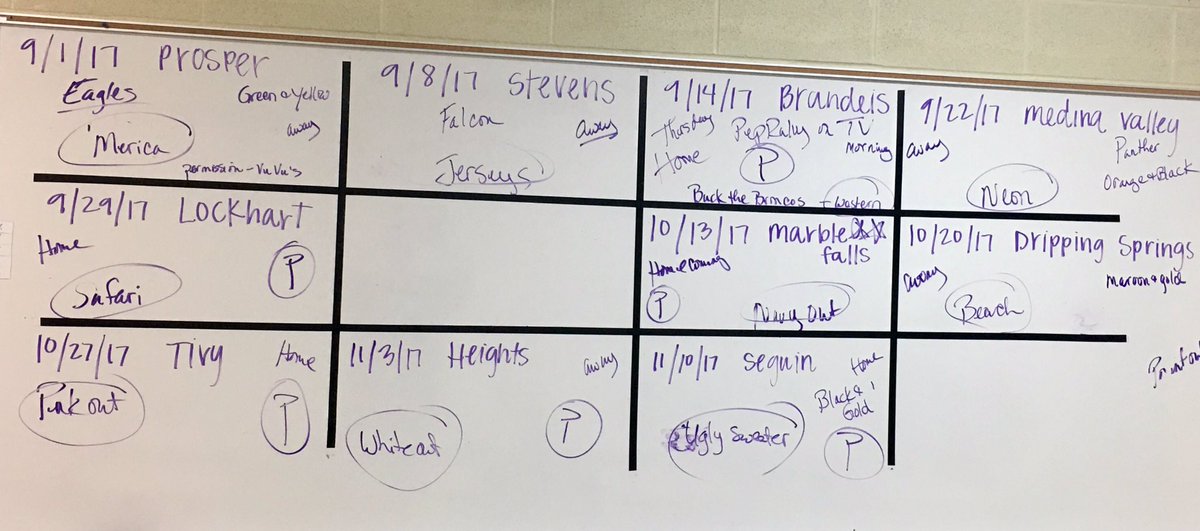 9/1/17 Prosper
Eagles Green & Yellow
'Merica away
permission - VuVu's
9/8/17 Stevens
Falcon away
Jerseys
9/14/17 Brandeis
Thursday Pep Rally on TV
Home P Morning
Buck the Broncos - Western
9/22/17 Medina Valley
away Panther
Neon Orange & Black
9/29/17 Lockhart
Home P
Safari
10/13/17 Marble
Falls
Homecoming
P Navy Out
10/20/17 Dripping Springs
away Maroon & gold
Beach
10/27/17 Tivy Home
Pink out P
11/3/17 Heights away
Whiteout P
11/10/17 Seguin Home
Black &
Gold
Ugly Sweater P